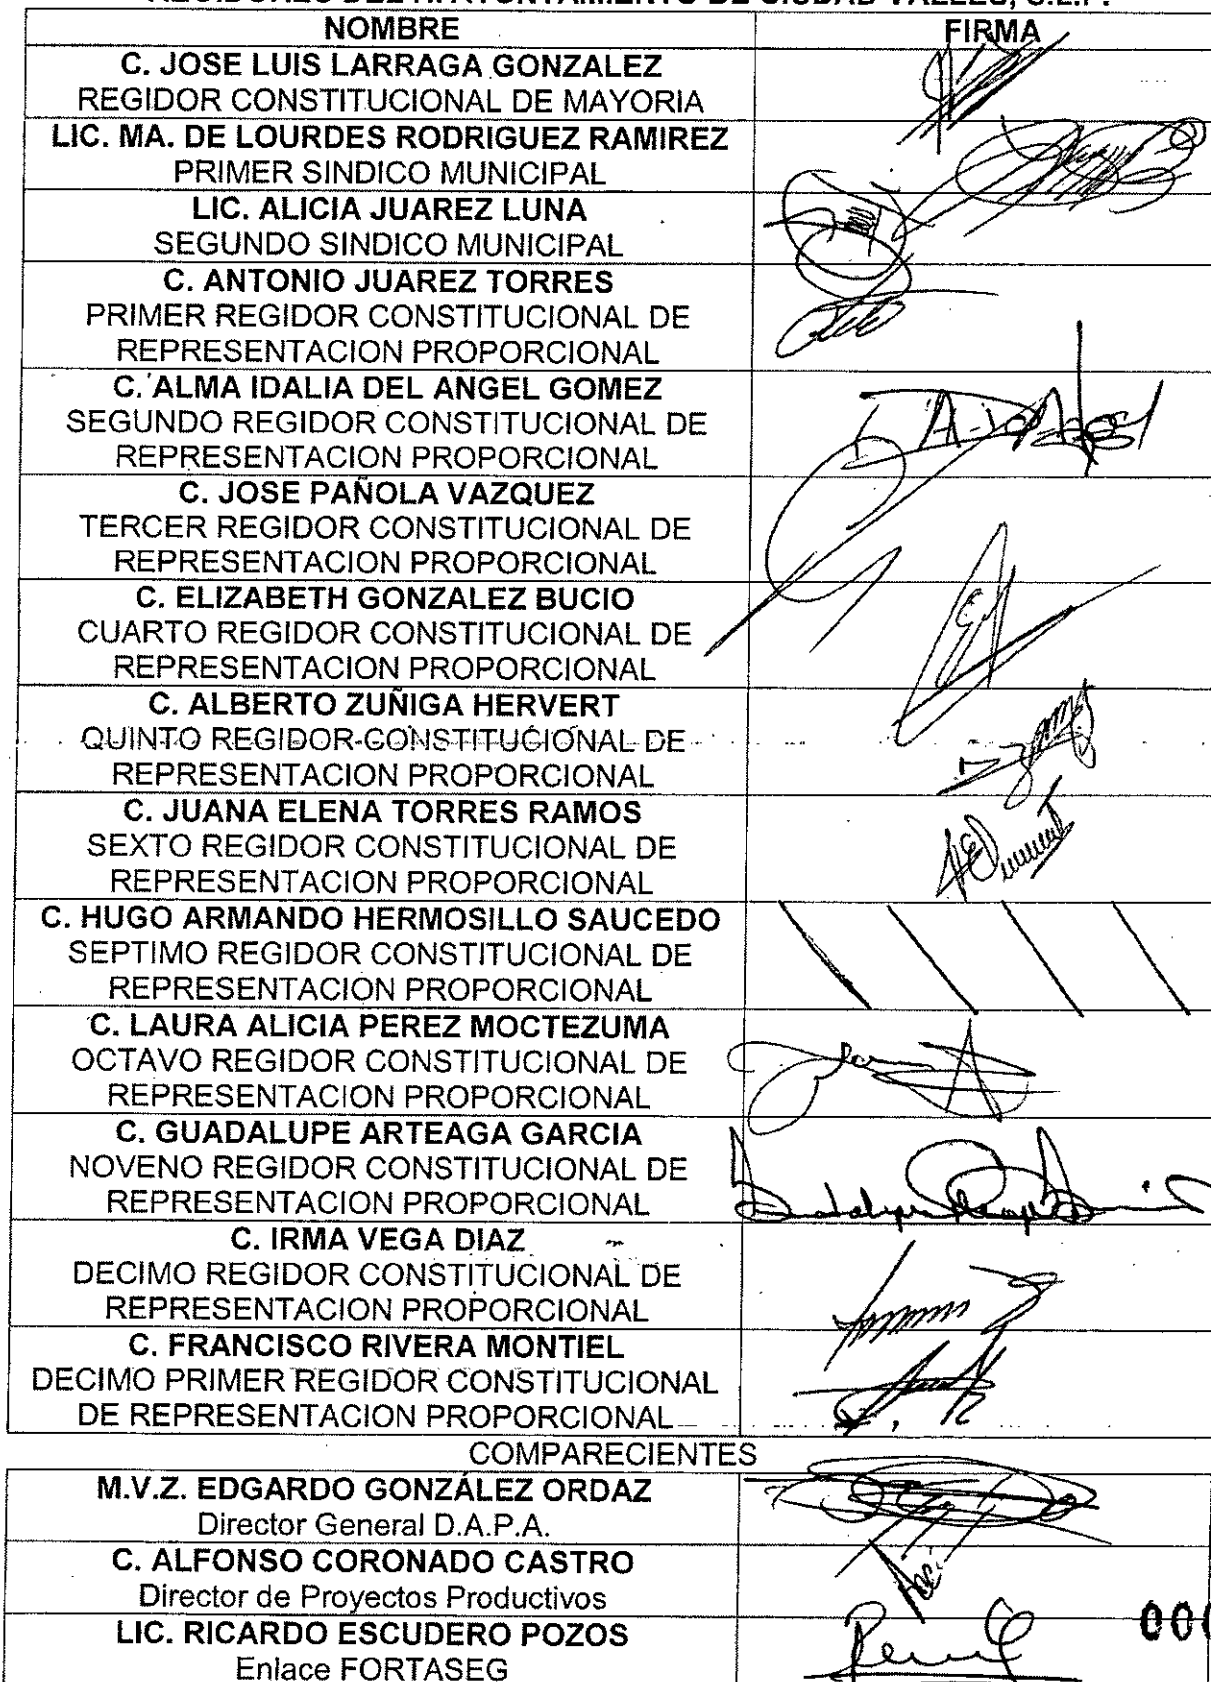 REGIDORES DEL H. AYUNTAMIENTO DE CIUDAD VALLES, S.L.P.
NOMBRE FIRMA
C. JOSE LUIS LARRAGA GONZALEZ
REGIDOR CONSTITUCIONAL DE MAYORIA
LIC. MA. DE LOURDES RODRIGUEZ RAMIREZ
PRIMER SINDICO MUNICIPAL
LIC. ALICIA JUAREZ LUNA
SEGUNDO SINDICO MUNICIPAL
C. ANTONIO JUAREZ TORRES
PRIMER REGIDOR CONSTITUCIONAL DE
REPRESENTACION PROPORCIONAL
C. ALMA IDALIA DEL ANGEL GOMEZ
SEGUNDO REGIDOR CONSTITUCIONAL DE
REPRESENTACION PROPORCIONAL
C. JOSE PAÑOLA VAZQUEZ
TERCER REGIDOR CONSTITUCIONAL DE
REPRESENTACION PROPORCIONAL
C. ELIZABETH GONZALEZ BUCIO
CUARTO REGIDOR CONSTITUCIONAL DE
REPRESENTACION PROPORCIONAL
C. ALBERTO ZUÑIGA HERVERT
QUINTO REGIDOR CONSTITUCIONAL DE
REPRESENTACION PROPORCIONAL
C. JUANA ELENA TORRES RAMOS
SEXTO REGIDOR CONSTITUCIONAL DE
REPRESENTACION PROPORCIONAL
C. HUGO ARMANDO HERMOSILLO SAUCEDO
SEPTIMO REGIDOR CONSTITUCIONAL DE
REPRESENTACION PROPORCIONAL
C. LAURA ALICIA PEREZ MOCTEZUMA
OCTAVO REGIDOR CONSTITUCIONAL DE
REPRESENTACION PROPORCIONAL
C. GUADALUPE ARTEAGA GARCIA
NOVENO REGIDOR CONSTITUCIONAL DE
REPRESENTACION PROPORCIONAL
C. IRMA VEGA DIAZ
DECIMO REGIDOR CONSTITUCIONAL DE
REPRESENTACION PROPORCIONAL
C. FRANCISCO RIVERA MONTIEL
DECIMO PRIMER REGIDOR CONSTITUCIONAL
DE REPRESENTACION PROPORCIONAL
COMPARECIENTES
M.V.Z. EDGARDO GONZÁLEZ ORDAZ
Director General D.A.P.A.
C. ALFONSO CORONADO CASTRO
Director de Proyectos Productivos
LIC. RICARDO ESCUDERO POZOS
Enlace FORTASEG
00